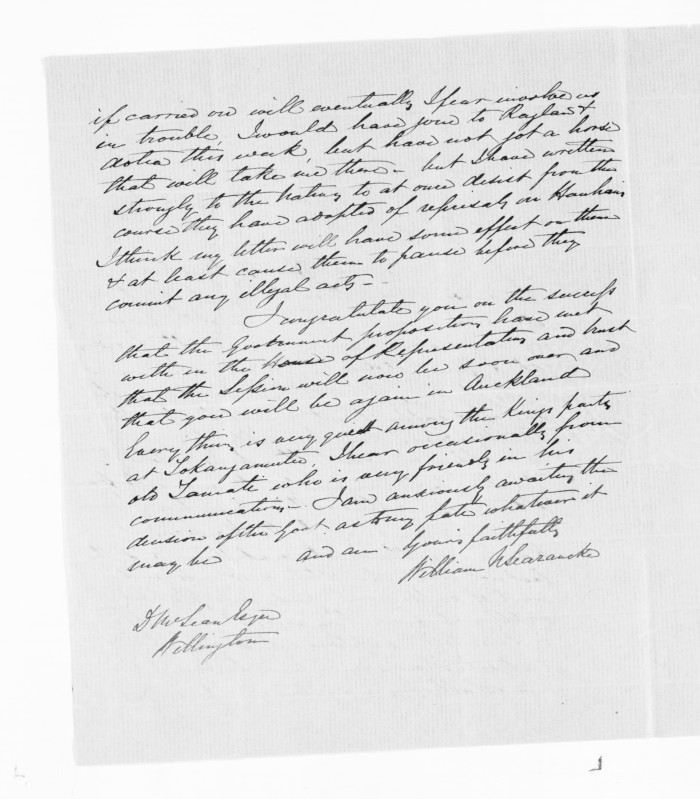 if carried on will eventually I fear involve us
in trouble, I would have gone to Raglan &
Aotea this week, but have not got a horse
that will take me there — but I have written
strongly to the natives to at once desist from the
course they have adopted of reprisals on Hauhaus
I think my letter will have some effect on them
& at least cause them to pause before they
commit any illegal acts —
I congratulate you on the success
that the Government propositions have met
with in the House of Representatives and trust
that the Session will now be soon over and
that you will be again in Auckland
Everything is very quiet among the Kings party
at Tokangamutu, I hear occasionally from
old Tamati who is very friendly in his
communications — I am anxiously awaiting the
decision of the Govt. as to my fate whatever it
may be and am Yours faithfully
William N Searancke
D McLean Esqre
Wellington